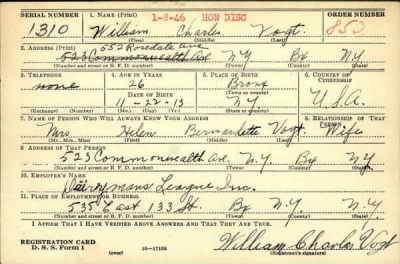 SERIAL NUMBER 1. NAME (Print) 1-8-46 HON DISC ORDER NUMBER
1310 William Charles Vogt. 853
(First) (Middle) (Last)
2. ADDRESS (Print) 552 Rosedale Ave
523 Commonwealth Ave. N.Y. Bx N.Y.
(Number and street or R. F. D. number) (Town) (County) (State)
3. TELEPHONE 4. AGE IN YEARS 5. PLACE OF BIRTH 6. COUNTRY OF CITIZENSHIP
none 26 Bronx
DATE OF BIRTH (Town or county)
11-22-13 N.Y. U.S.A.
(Exchange) (Number) (Mo.) (Day) (Yr.) (State or country)
7. NAME OF PERSON WHO WILL ALWAYS KNOW YOUR ADDRESS 8. RELATIONSHIP OF THAT PERSON
Mrs Helen Bernadette Vogt. Wife
(Mr., Mrs., Miss) (First) (Middle) (Last)
9. ADDRESS OF THAT PERSON
523 Commonwealth Ave. N.Y. Bx N.Y.
(Number and street or R. F. D. number) (Town) (County) (State)
10. EMPLOYER'S NAME
Dairymans League Inc.
11. PLACE OF EMPLOYMENT OR BUSINESS
535 East 133 St. Bx N.Y. N.Y.
(Number and street or R. F. D. number) (Town) (County) (State)
I AFFIRM THAT I HAVE VERIFIED ABOVE ANSWERS AND THAT THEY ARE TRUE.
REGISTRATION CARD
D. S. S. Form 1 (over) 16—17105 William Charles Vogt
(Registrant's signature)